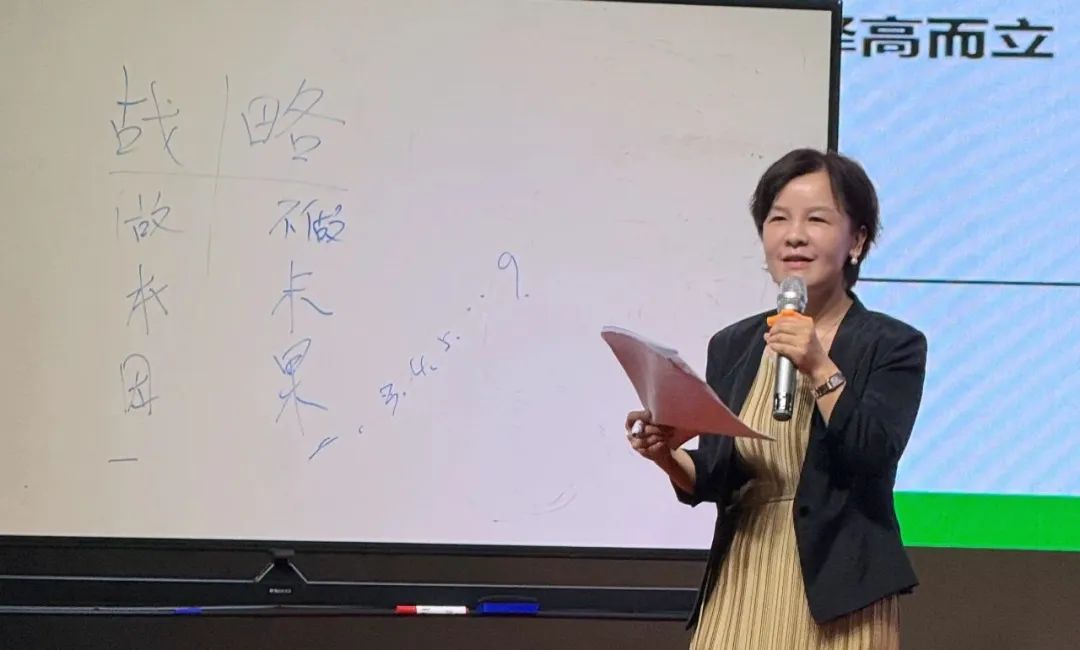 高而立
战 略
做 不做
本 末
因 果
一
3. 4. 5. . . 9.